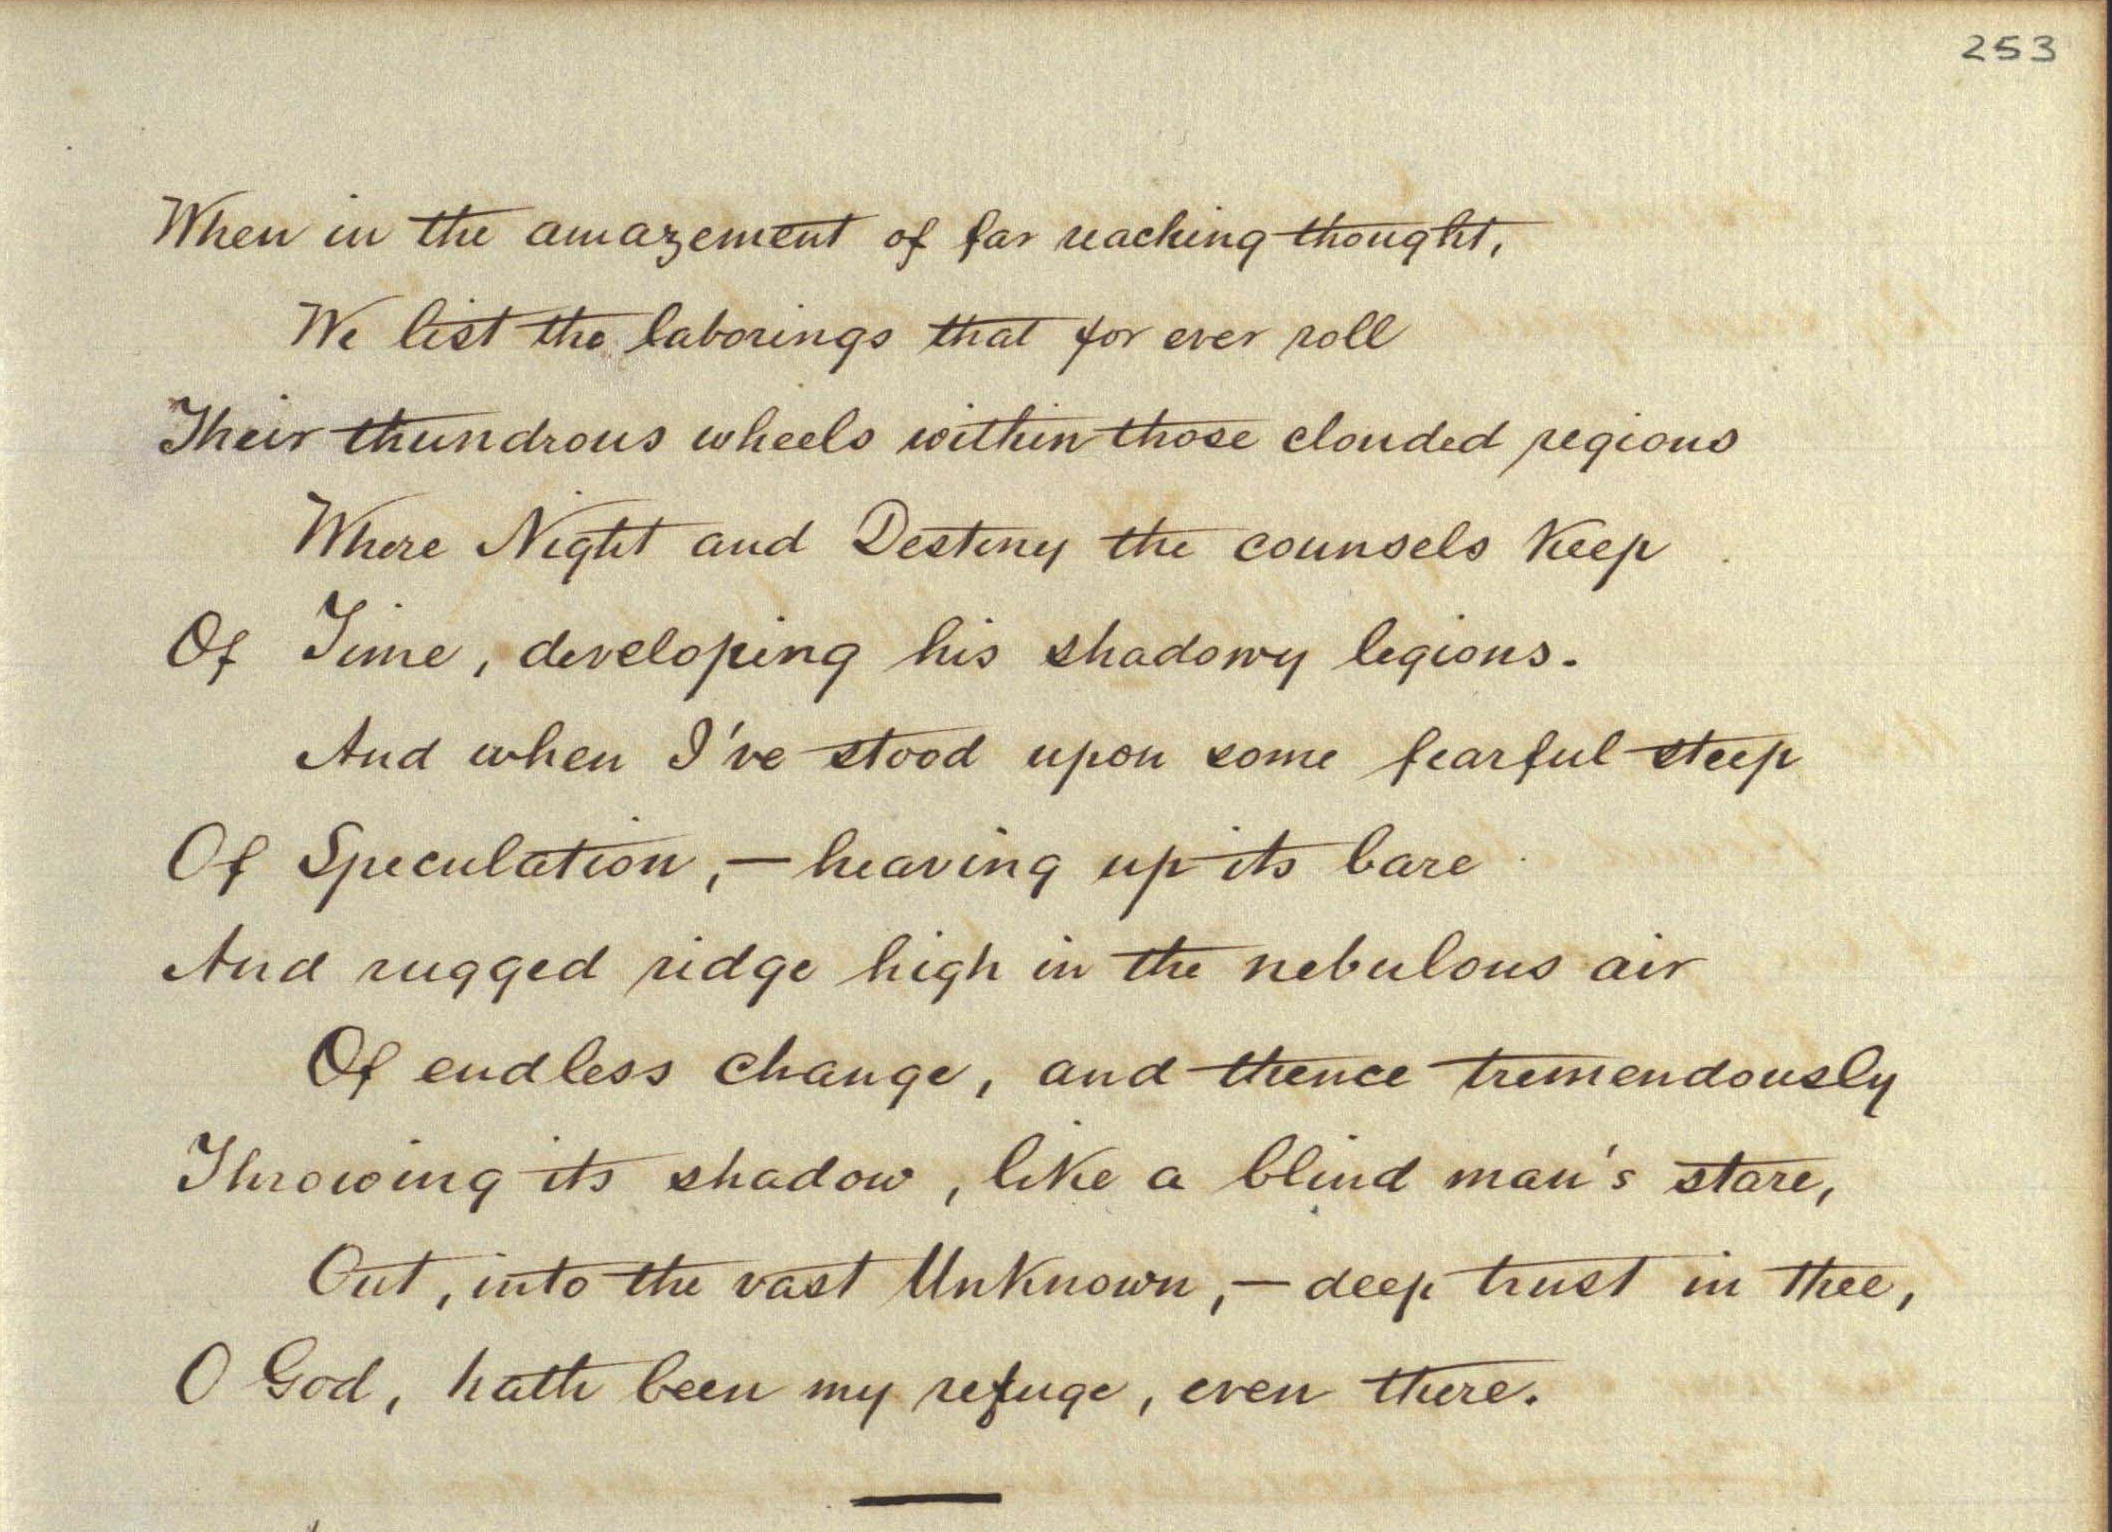 253
When in the amazement of far reaching thought,
We list the laborings that for ever roll
Their thundrous wheels within those clouded regions
Where Night and Destiny the counsels keep
Of Time, developing his shadowy legions.
And when I've stood upon some fearful steep
Of Speculation, — heaving up its bare
And rugged ridge high in the nebulous air
Of endless change, and thence tremendously
Throwing its shadow, like a blind man's stare,
Out, into the vast Unknown, — deep trust in thee,
O God, hath been my refuge, even there.